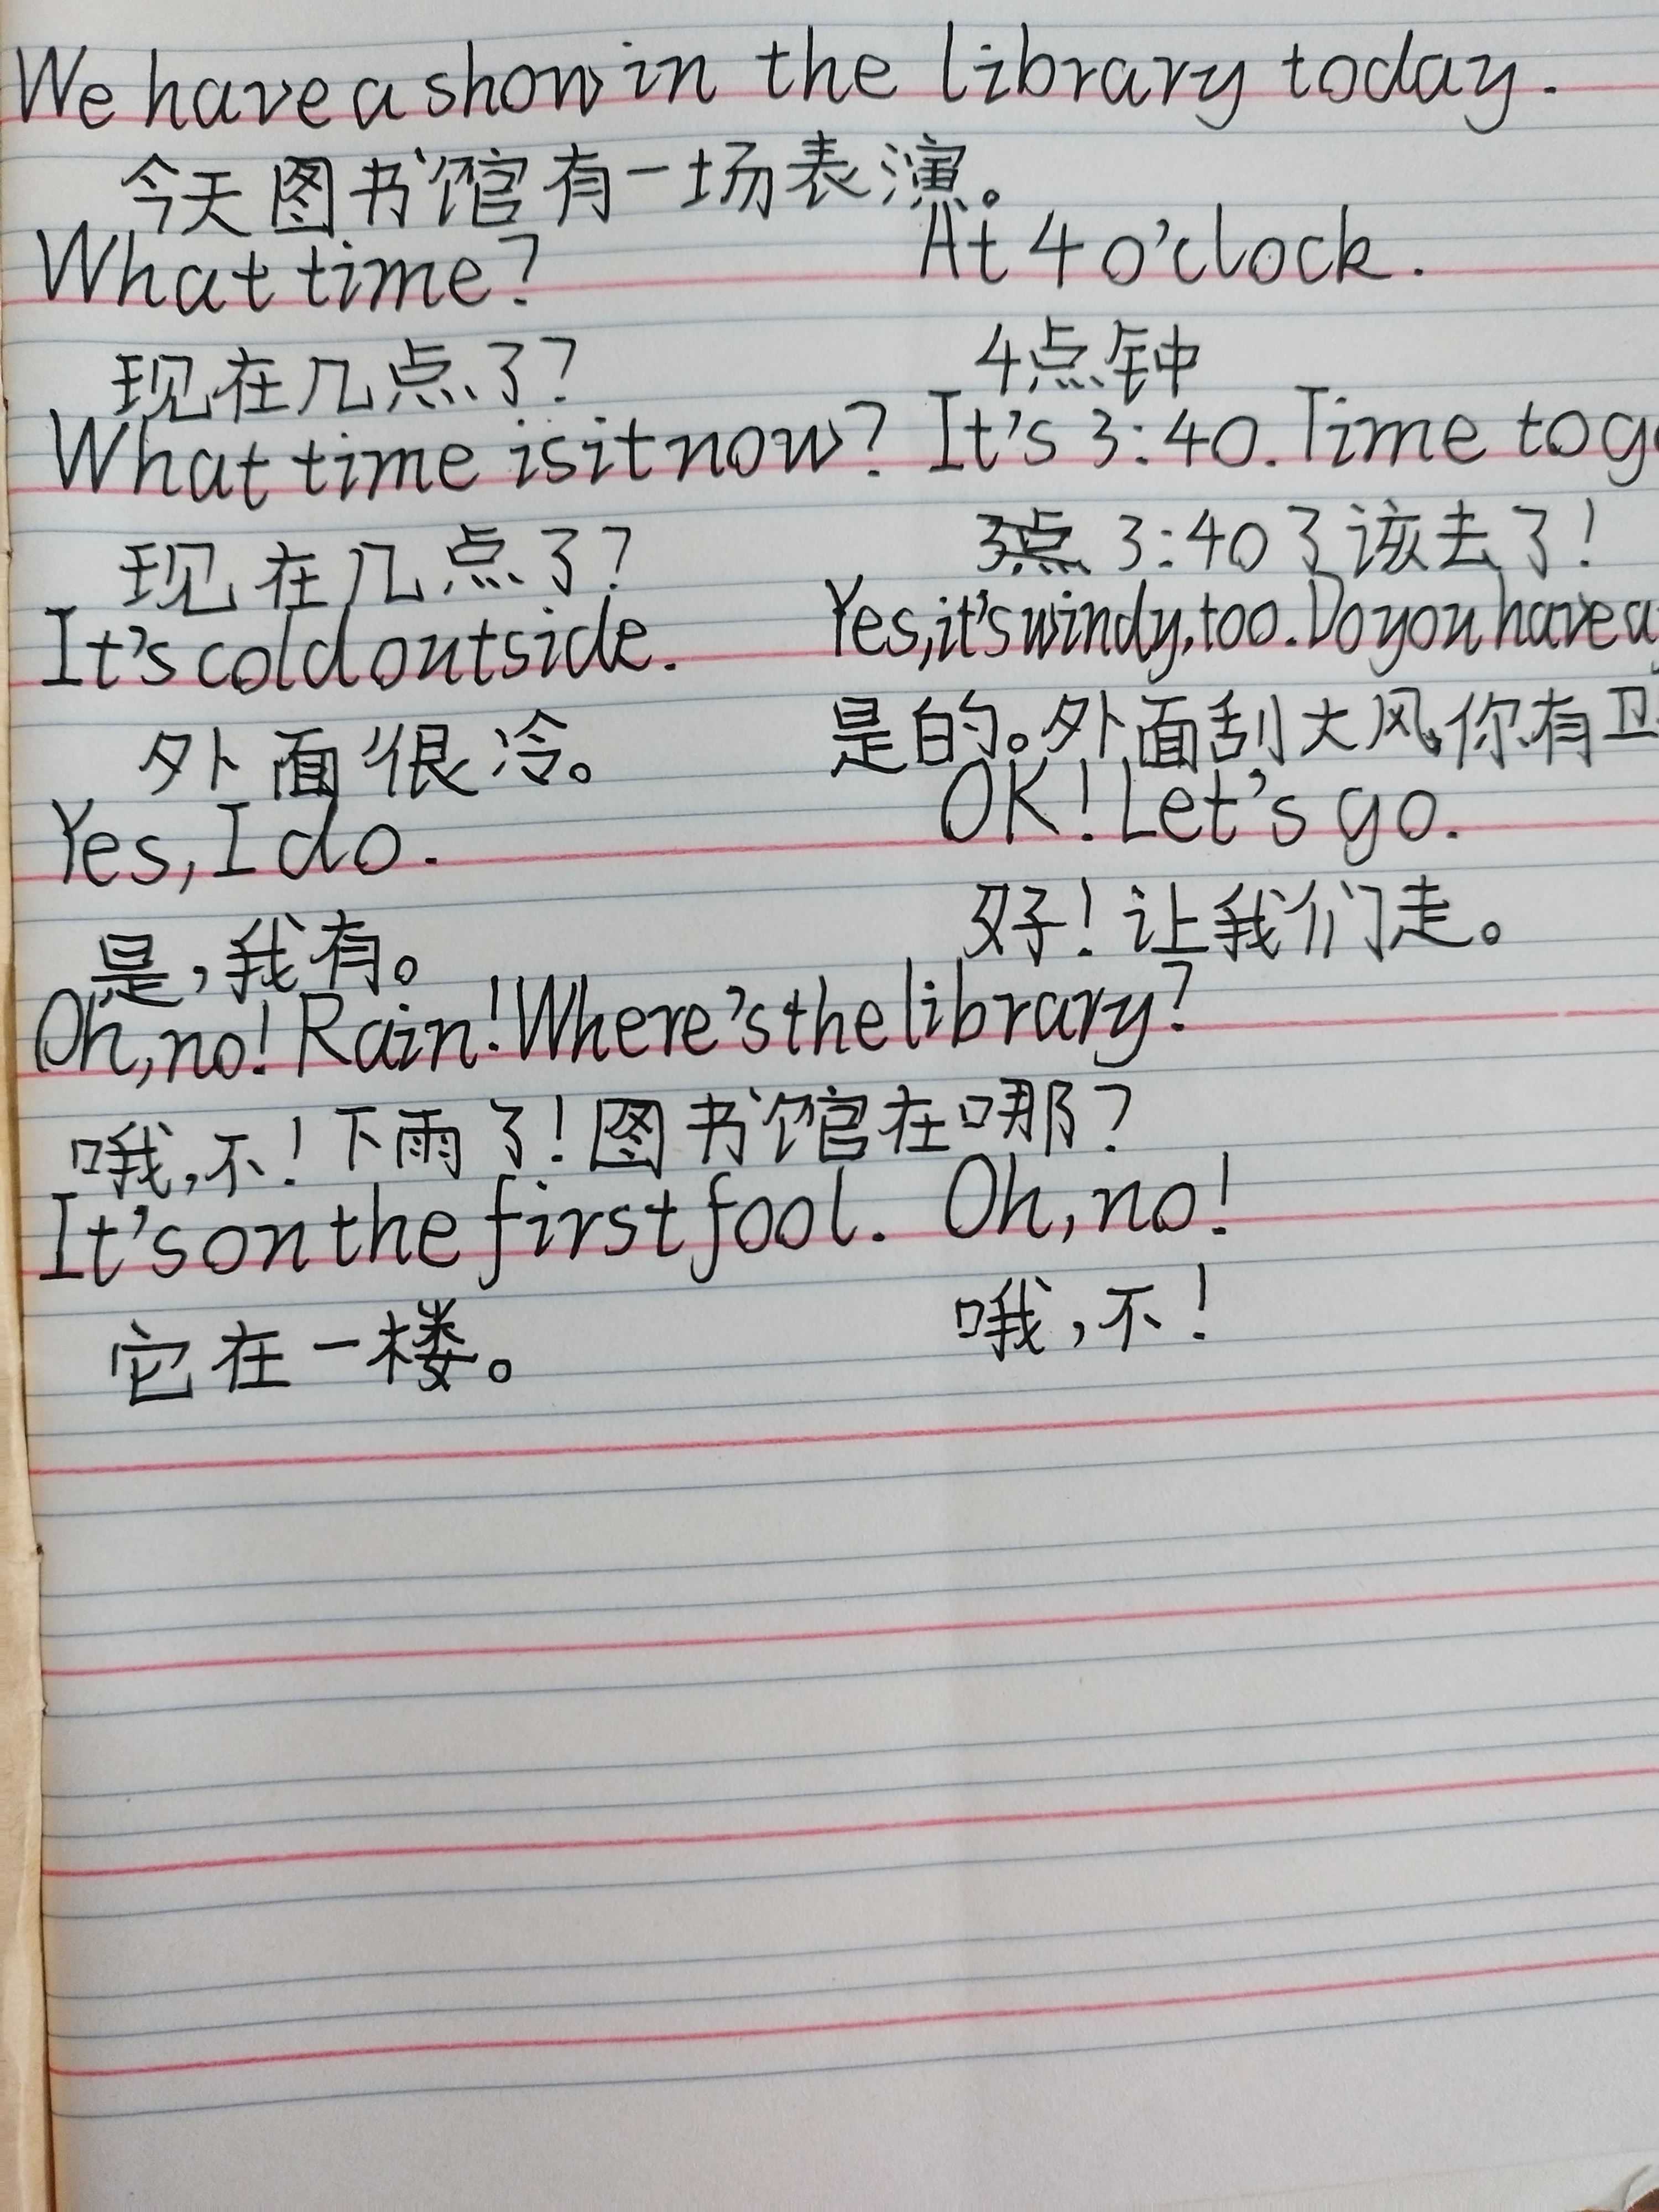 We have a show in the library today.
今天图书馆有一场表演。
What time? At 4 o'clock.
现在几点了? 4点钟
What time is it now? It's 3:40. Time to
现在几点了? 3:40了该去了!
It's cold outside. Yes, it's windy, too. Do you have a
外面很冷。 是的。外面刮大风,你有卫
Yes, I do. OK! Let's go.
是,我有。 好!让我们走。
Oh, no! Rain! Where's the library?
哦,不!下雨了!图书馆在哪?
It's on the first fool. Oh, no!
它在一楼。 哦,不!